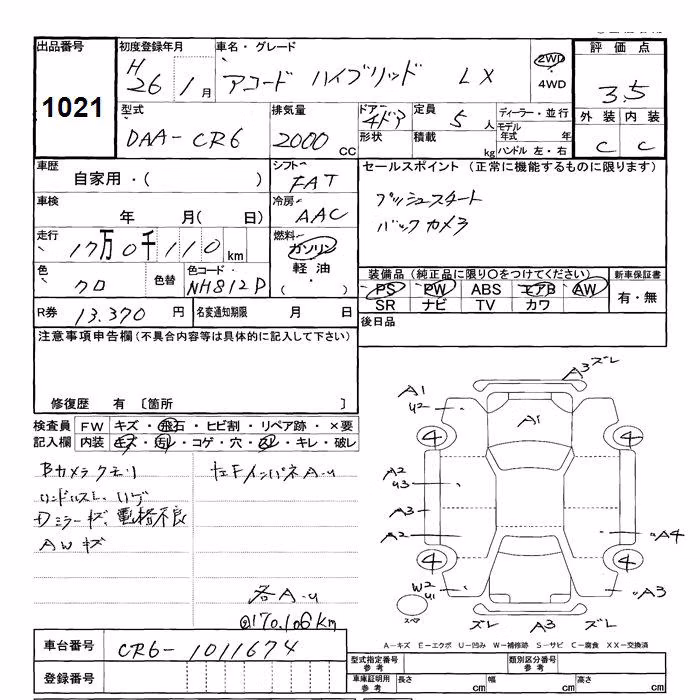 出品番号
1021
初度登録年月
H 26年 1月
車名・グレード
アコード ハイブリッド LX
2WD
4WD
評価点
3.5
外装 内装
C C
型式
DAA-CR6
排気量
2000 CC
ドアー
4ドア
形状
定員
5 人
積載
kg
ディーラー・並行
モデル年式 年
ハンドル 左・右
車歴
自家用・( )
シフト
FAT
セールスポイント (正常に機能するものに限ります)
プッシュスタート
バックカメラ
車検
年 月( 日)
冷房
AAC
走行
17万0千110 km
燃料
ガソリン
軽油
( ・ )
色
クロ
色替
色コード
NH812P
装備品 (純正品に限り〇をつけてください)
PS PW ABS エアB AW
SR ナビ TV カワ
新車保証書
有・無
R券 13,370 円
名変通知期限 月 日
後日品
注意事項申告欄(不具合内容等は具体的に記入して下さい)
修復歴 有 〔箇所 〕
検査員記入欄
FW キズ・飛石・ヒビ割・リペア跡・×要
内装 キズ・汚レ・コゲ・穴・スレ・キレ・破レ
Bカメラクモリ
ハンドルスレ、ハゲ
Dミラーキズ、電格不良
AWキズ
センFインパネA-U
各A-U
170,106km
A3 ズレ
A1
U2
A1
4
4
A2
U3
A3
A2
A4
4
4
W2
U1
A3
スペア
ズレ
A3
ズレ
A-キズ E-エクボ U-凹み W-補修跡 S-サビ C-腐食 XX-交換済
車台番号
CR6-1011674
登録番号
型式指定番号
参考
類別区分番号
参考
車庫証明用
参考
長さ cm
幅 cm
高さ cm